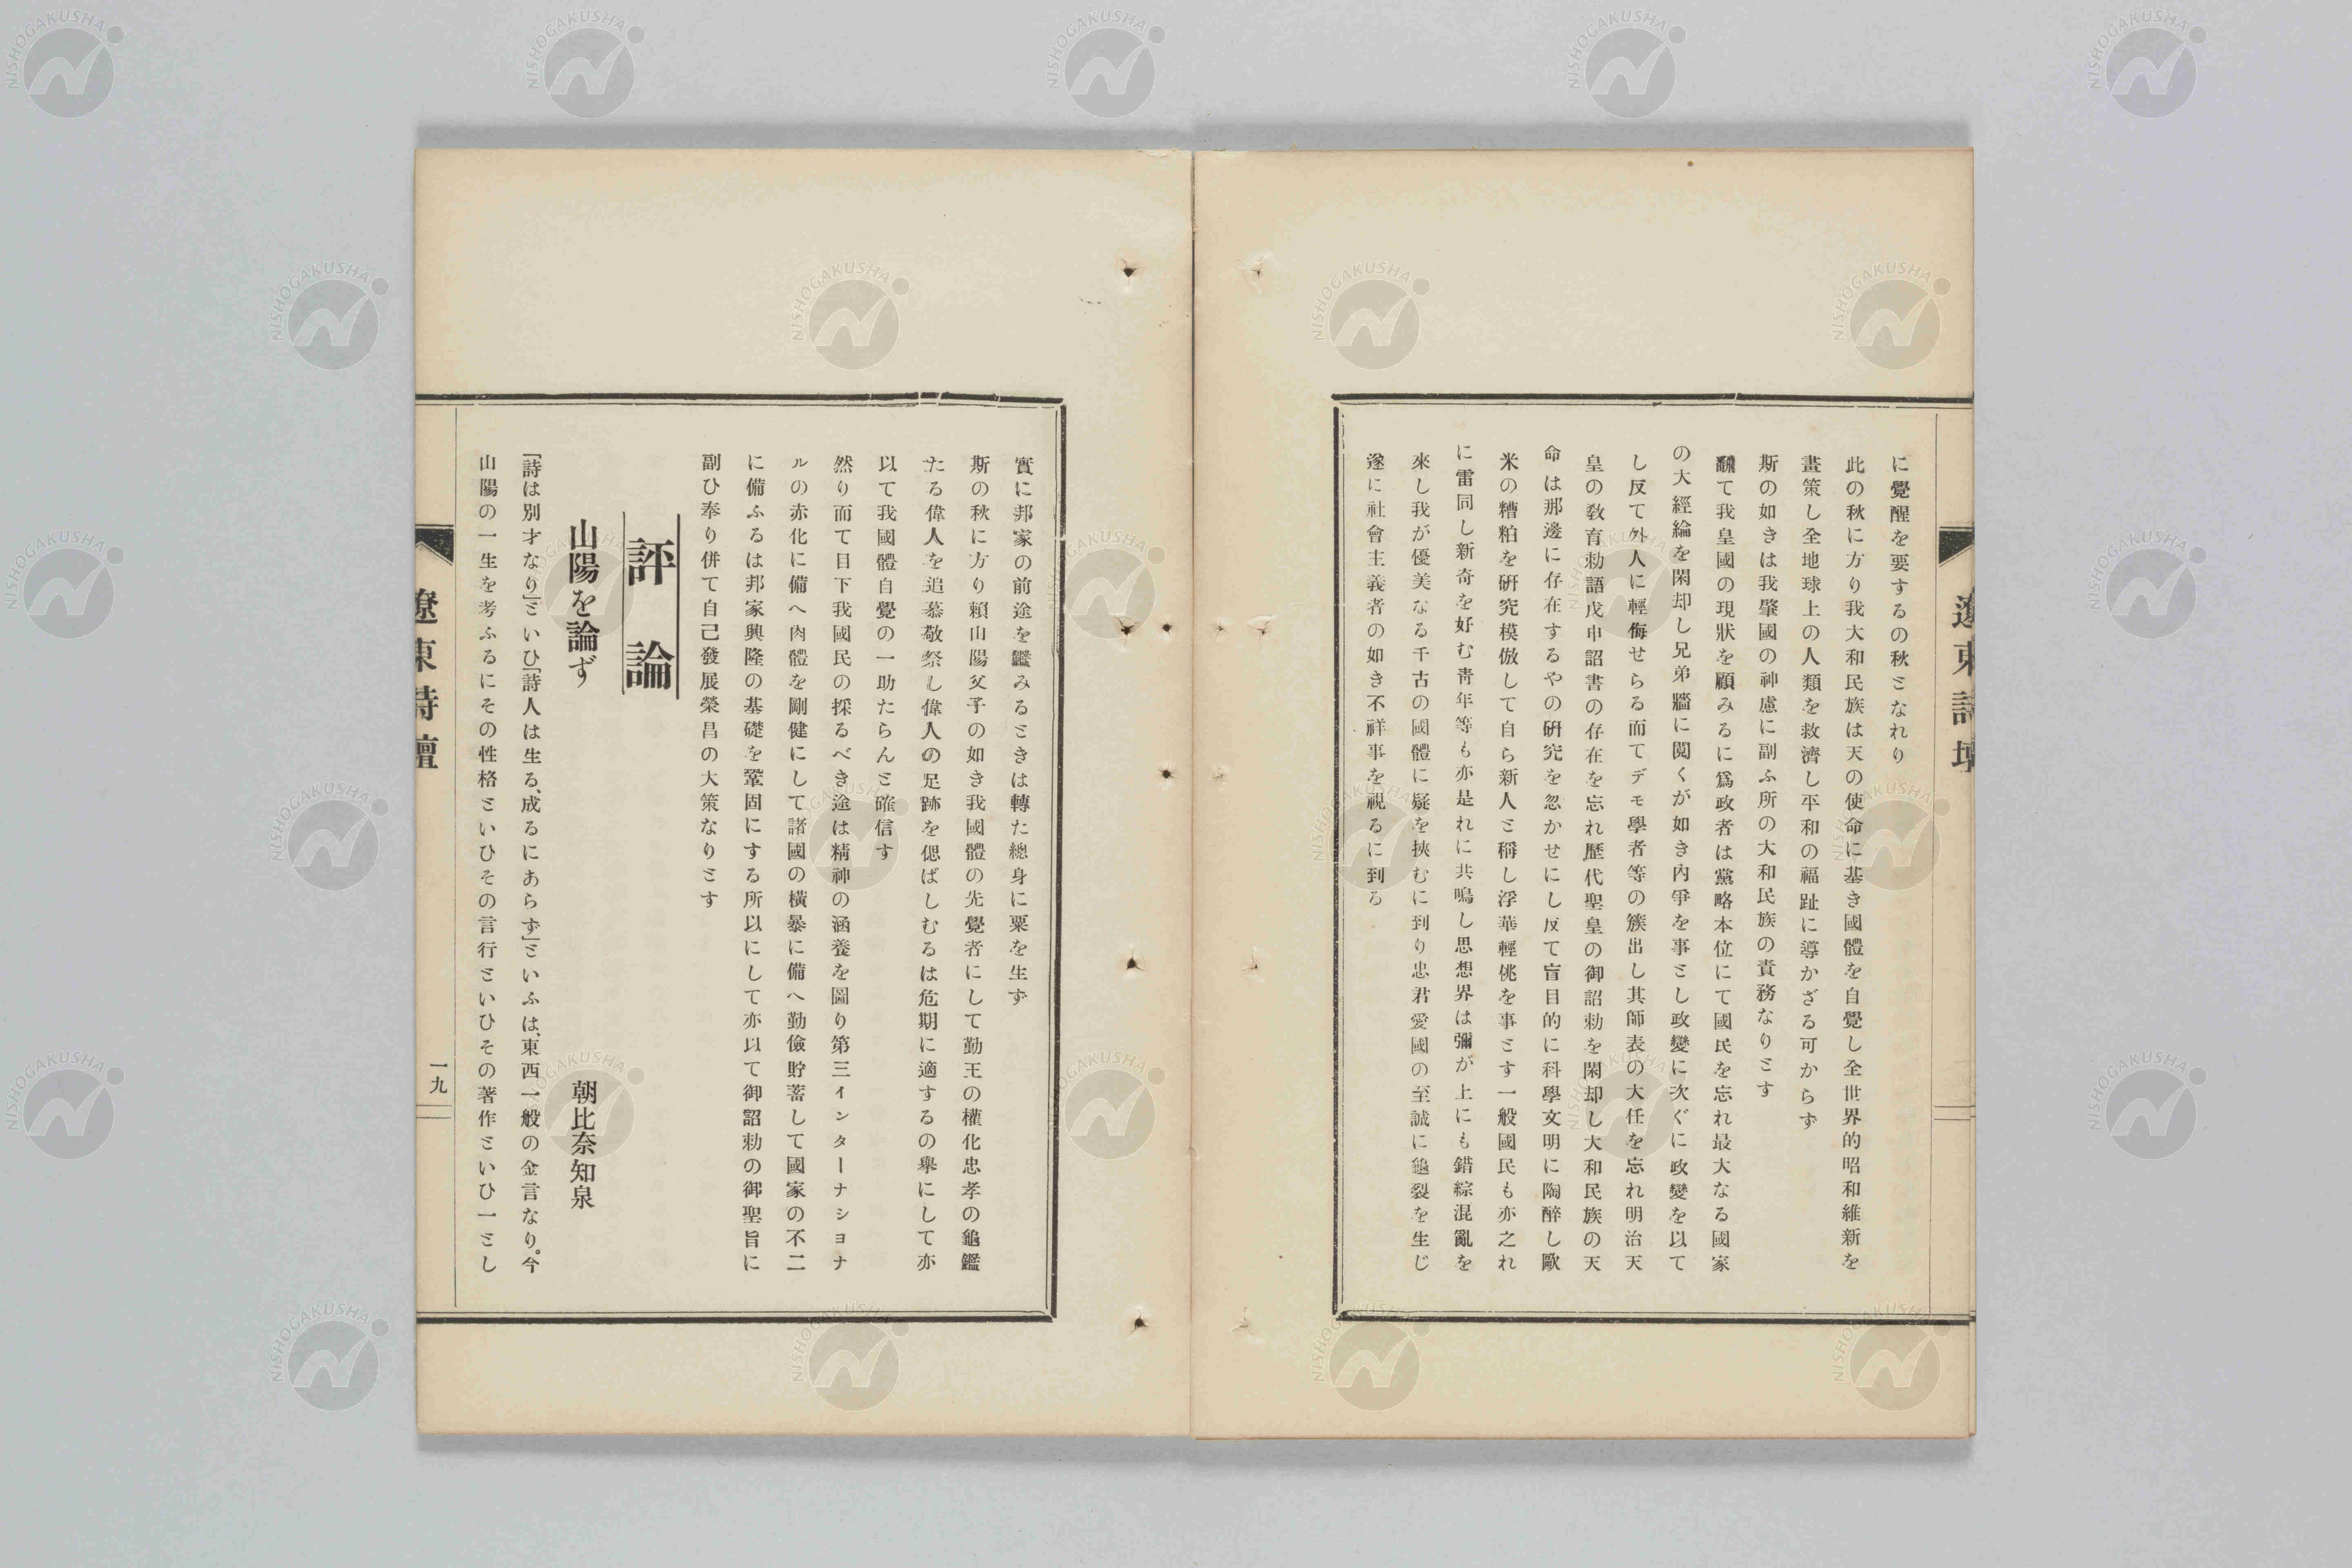 に覺醒を要するの秋となれり
此の秋に方り我大和民族は天の使命に基き國體を自覺し全世界的昭和維新を
畫策し全地球上の人類を救濟し平和の福趾に導かざる可からず
斯の如きは我肇國の神慮に副ふ所の大和民族の責務なりとす
飜て我皇國の現狀を顧みるに爲政者は黨略本位にて國民を忘れ最大なる國家
の大經綸を閑却し兄弟牆に鬩くが如き内爭を事とし政變に次ぐに政變を以て
し反て外人に輕侮せらる而てデモ學者等の簇出し其師表の大任を忘れ明治天
皇の敎育勅語戊申詔書の存在を忘れ歷代聖皇の御詔勅を閑却し大和民族の天
命は那邊に存在するやの硏究を忽かせにし反て盲目的に科學文明に陶醉し歐
米の糟粕を硏究模倣して自ら新人と稱し浮華輕佻を事とす一般國民も亦之れ
に雷同し新奇を好む靑年等も亦是れに共鳴し思想界は彌が上にも錯綜混亂を
來し我が優美なる千古の國體に疑を挾むに到り忠君愛國の至誠に龜裂を生じ
遂に社會主義者の如き不祥事を視るに到る
實に邦家の前途を鑑みるときは轉た總身に粟を生ず
斯の秋に方り賴山陽父子の如き我國體の先覺者にして勤王の權化忠孝の龜鑑
たる偉人を追慕敬祭し偉人の足跡を偲ばしむるは危期に適するの擧にして亦
以て我國體自覺の一助たらんと確信す
然り而て目下我國民の採るべき途は精神の涵養を圖り第三インターナショナ
ルの赤化に備へ肉體を剛健にして諸國の橫暴に備へ勤儉貯蓄して國家の不二
に備ふるは邦家興隆の基礎を鞏固にする所以にして亦以て御詔勅の御聖旨に
副ひ奉り併て自己發展榮昌の大策なりとす
評論
山陽を論ず
朝比奈知泉
「詩は別才なり」といひ「詩人は生る、成るにあらず」といふは、東西一般の金言なり。今
山陽の一生を考ふるにその性格といひその言行といひその著作といひ一とし
遼東詩壇
一九